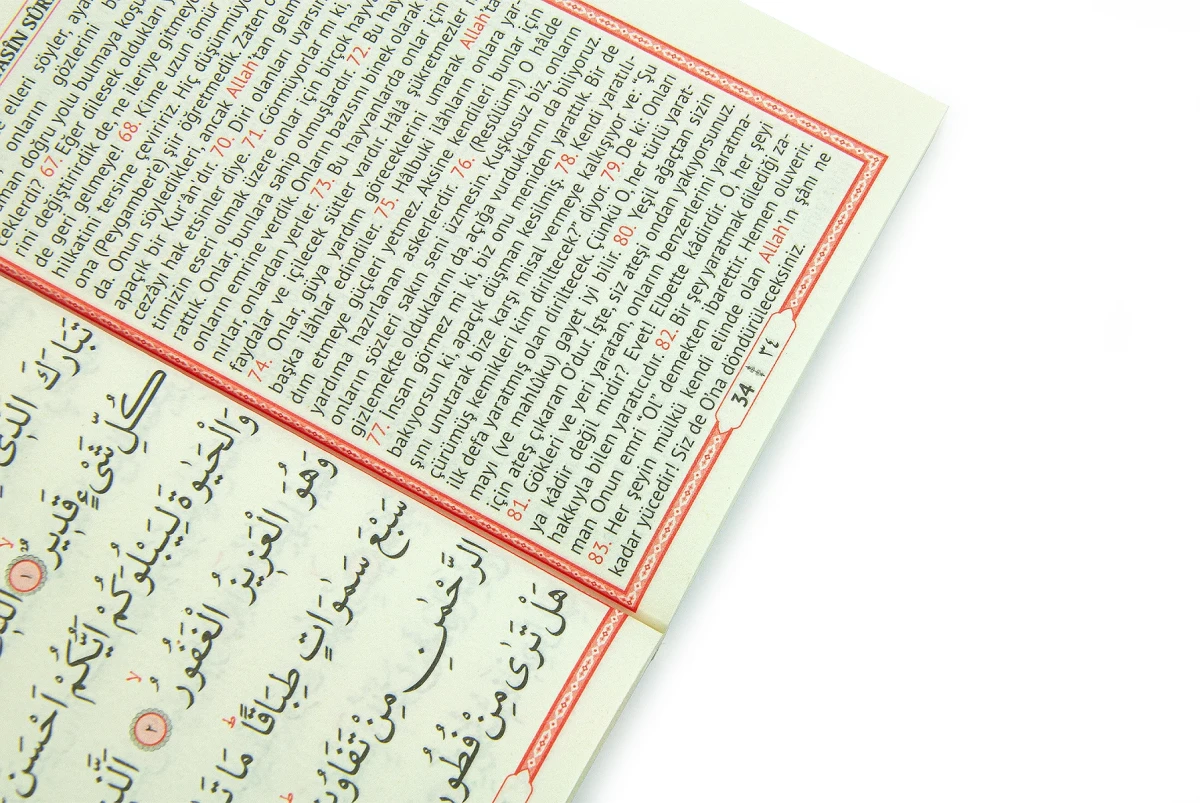 ASÎN SÛR
elleri söyler, aya
onların gözlerini b
doğru yolu bulmaya koşu
67. Eğer dilesek oldukları
rini değiştirirdik de, ne ileriye gitmeye
de geri gelmeye! 68. Kime uzun ömür
hilkatini tersine çeviririz. Hiç düşünmüyo
ona (Peygambere) şiir öğretmedik. Zaten o
da. Onun söyledikleri ancak Allah'tan gelm
apaçık bir Kur'ân dır. 70. Diri olanları uyarsın
cezâyı hak etsinler diye. 71. Görmüyorlar mı ki,
timizin eseri olmak üzere onlar için birçok hayva
rattık. Onlar, bunlara sahip olmuşlardır. 72. Bu hayv
onların emrine verdik. Onların bazısını binek olarak
nırlar, onlardan yerler. 73. Bu hayvanlarda onlar için
faydalar ve içilecek sütler vardır. Hâlâ şükretmezler
74. Onlar, güya yardım göreceklerini umarak Allah'ta
başka ilâhlar edindiler. 75. Hâlbuki ilâhların onlara yar
dım etmeye güçleri yetmez. Aksine kendileri bunlar için
yardıma hazırlanan askerlerdir. 76. (Resûlüm) O hâlde
onların sözleri sakın seni üzmesin. Kuşkusuz biz, onların
gizlemekte olduklarını da, açığa vurduklarını da biliyoruz.
77. İnsan görmez mi ki, biz onu meniden yarattık. Bir de
bakıyorsun ki, apaçık düşman kesilmiş. 78. Kendi yaratılı-
şını unutarak bize karşı misal vermeye kalkışıyor ve: “Şu
çürümüş kemikleri kim diriltecek?” diyor. 79. De ki: Onları
ilk defa yaratmış olan diriltecek. Çünkü O, her türlü yarat-
mayı (ve mahlûku) gayet iyi bilir. 80. Yeşil ağaçtan sizin
için ateş çıkaran O'dur. İşte, siz ateşi ondan yakıyorsunuz.
81. Gökleri ve yeri yaratan, onların benzerlerini yaratma-
ya kâdir değil midir? Evet! Elbette kâdirdir. O, her şeyi
hakkıyla bilen yaratıcıdır. 82. Bir şey yaratmak dilediği za-
man Onun emri “Ol” demekten ibarettir. Hemen oluverir.
83. Her şeyin mülkü kendi elinde olan Allah'ın şânı ne
kadar yücedir! Siz de O'na döndürüleceksiniz.
34 ٣٤
تَبَارَكَ الَّذ۪ي
كُلِّ شَيْءٍ قَد۪يرٌ ١
وَالْحَيٰوةَ لِيَبْلُوَكُمْ اَيُّكُمْ اَحْسَنُ
وَهُوَ الْعَز۪يزُ الْغَفُورُ ٢ الَّذ۪
سَبْعَ سَمٰوَاتٍ طِبَاقًا مَا تَ
الرَّحْمٰنِ مِنْ تَفَاوُتٍ
هَلْ تَرٰى مِنْ فُطُورٍ